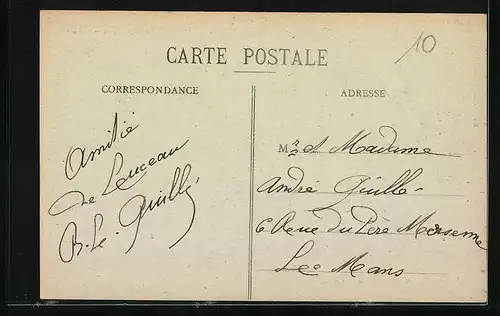 10
CARTE POSTALE
CORRESPONDANCE
ADRESSE
Amitié
de Luceau
B. Le. Guillé
Mr et Madame
André Guillé
6 Rue du Père Mersenne
Le Mans